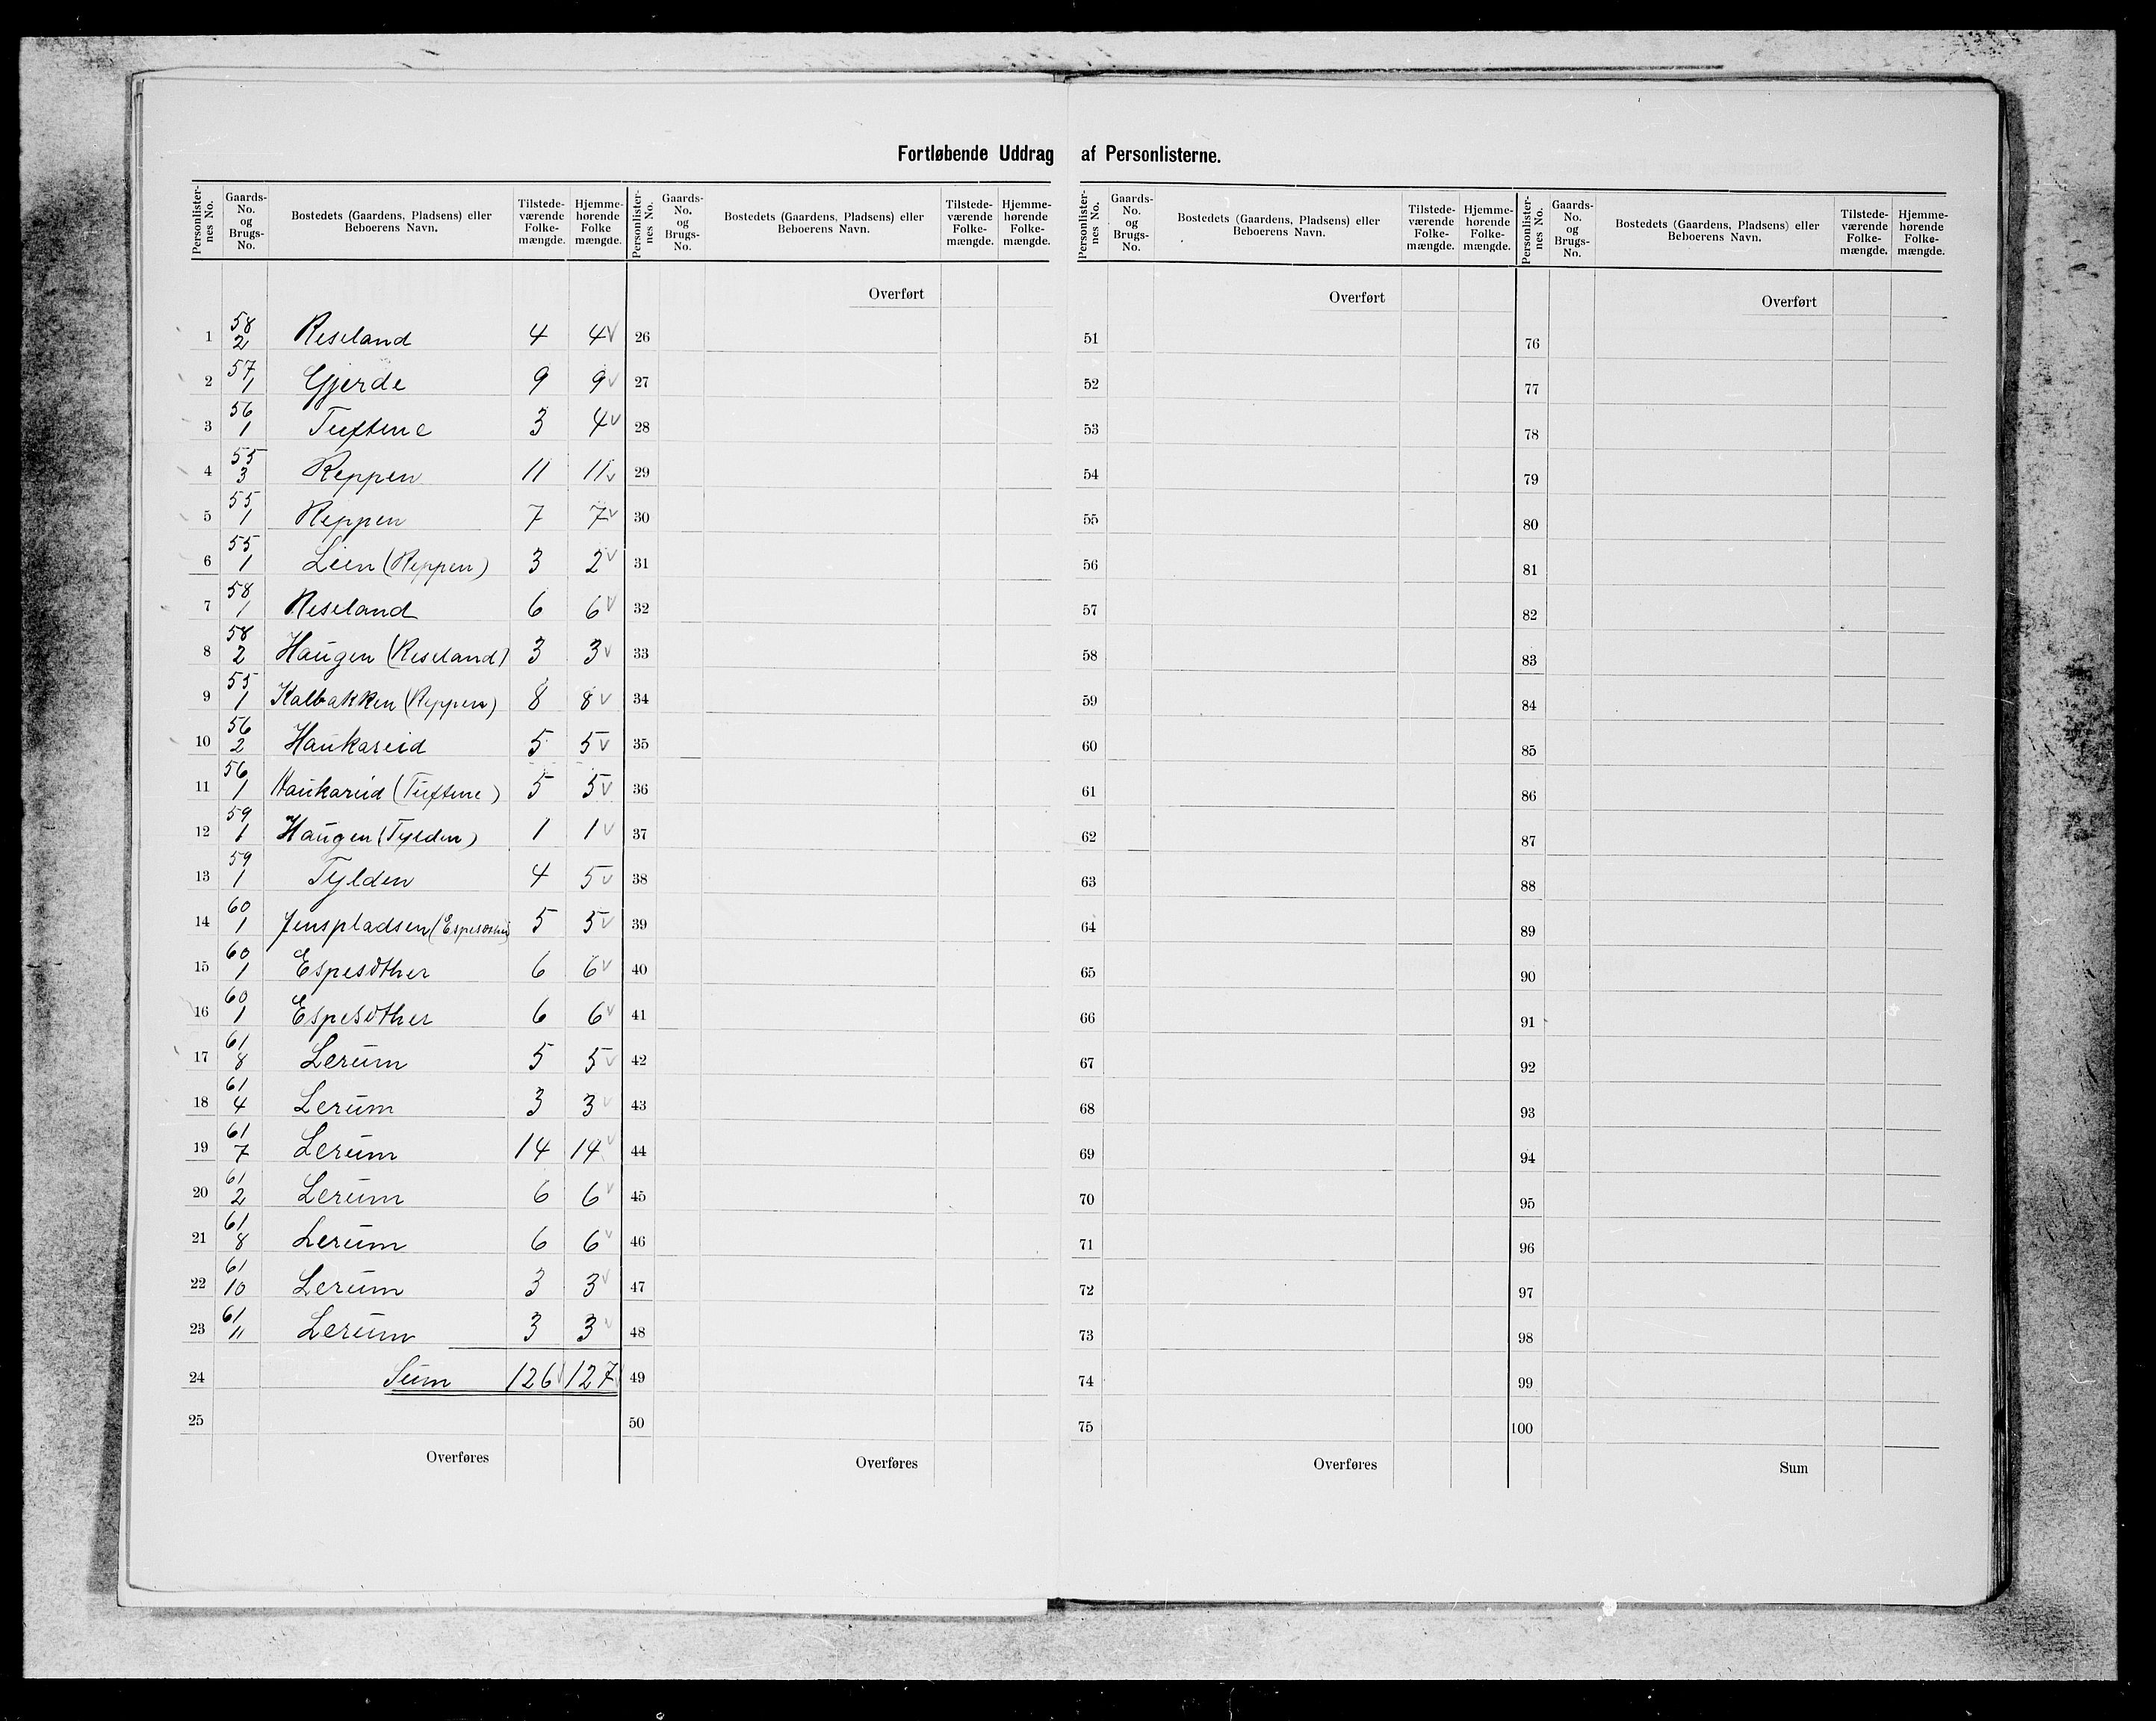 Fortløbende Uddrag af Personlisterne.
Personlister-nes No. Gaards-No. og Brugs-No. Bostedets (Gaardens, Pladsens) eller Beboerens Navn. Tilstede-værende Folke-mængde. Hjemme-hørende Folke mængde.
Personlister-nes No. Gaards-No. og Brugs-No. Bostedets (Gaardens, Pladsens) eller Beboerens Navn. Tilstede-værende Folke-mængde. Hjemme-hørende Folke-mængde.
Personlister-nes No. Gaards-No. og Brugs-No. Bostedets (Gaardens, Pladsens) eller Beboerens Navn. Tilstede-værende Folke-mængde. Hjemme-hørende Folke-mængde.
Personlister-nes No. Gaards-No. og Brugs-No. Bostedets (Gaardens, Pladsens) eller Beboerens Navn. Tilstede-værende Folke-mængde. Hjemme-hørende Folke-mængde.
Overført Overført Overført
1 58/2 Reseland 4 4 v 26 51 76
2 57/1 Gjerde 9 9 v 27 52 77
3 56/1 Tuftene 3 4 v 28 53 78
4 55/3 Reppen 11 11 v 29 54 79
5 55/1 Reppen 7 7 v 30 55 80
6 55/1 Lien (Reppen) 3 2 v 31 56 81
7 58/1 Reseland 6 6 v 32 57 82
8 58/2 Haugen (Reseland) 3 3 v 33 58 83
9 55/1 Kalbakken (Reppen) 8 8 v 34 59 84
10 56/2 Haukareid 5 5 v 35 60 85
11 56/1 Haukareid (Tuftene) 5 5 v 36 61 86
12 59/1 Haugen (Tylden) 1 1 v 37 62 87
13 59/1 Tylden 4 5 v 38 63 88
14 60/1 Jenspladsen (Espesøther) 5 5 v 39 64 89
15 60/1 Espesøther 6 6 v 40 65 90
16 60/1 Espesøther 6 6 v 41 66 91
17 61/8 Lerum 5 5 v 42 67 92
18 61/4 Lerum 3 3 v 43 68 93
19 61/7 Lerum 14 14 v 44 69 94
20 61/2 Lerum 6 6 v 45 70 95
21 61/8 Lerum 6 6 v 46 71 96
22 61/10 Lerum 3 3 v 47 72 97
23 61/11 Lerum 3 3 v 48 73 98
24 Sum 126 v 127 v 49 74 99
25 50 75 100
Overføres Overføres Overføres Sum